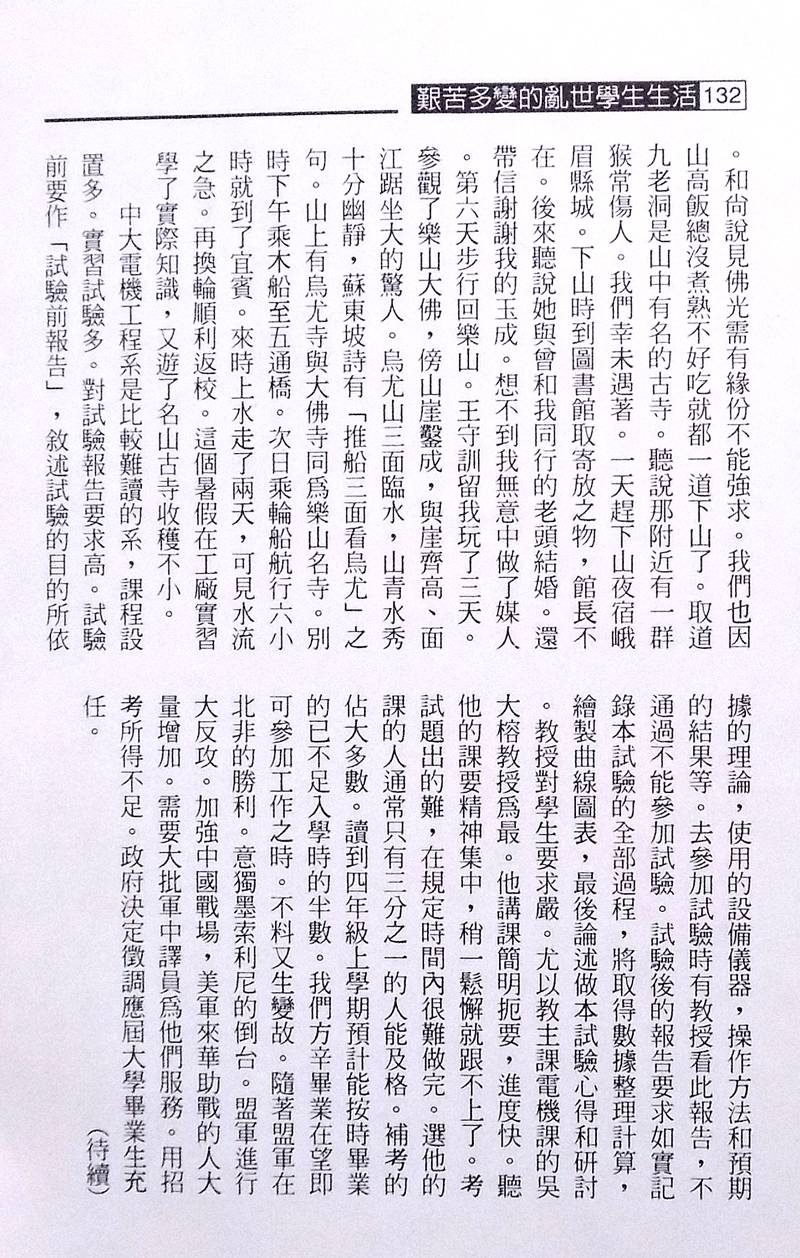 艱苦多變的亂世學生生活 132
。和尙說見佛光需有緣份不能強求。我們也因
山高飯總沒煮熟不好吃就都一道下山了。取道
九老洞是山中有名的古寺。聽說那附近有一群
猴常傷人。我們幸未遇著。一天趕下山夜宿峨
眉縣城。下山時到圖書館取寄放之物，館長不
在。後來聽說她與曾和我同行的老頭結婚。還
帶信謝謝我的玉成。想不到我無意中做了媒人
。第六天步行回樂山。王守訓留我玩了三天。
參觀了樂山大佛，傍山崖鑿成，與崖齊高、面
江踞坐大的驚人。烏尤山三面臨水，山青水秀
十分幽靜，蘇東坡詩有「推船三面看烏尤」之
句。山上有烏尤寺與大佛寺同爲樂山名寺。別
時下午乘木船至五通橋。次日乘輪船航行六小
時就到了宜賓。來時上水走了兩天，可見水流
之急。再換輪順利返校。這個暑假在工廠實習
學了實際知識，又遊了名山古寺收穫不小。
中大電機工程系是比較難讀的系，課程設
置多。實習試驗多。對試驗報告要求高。試驗
前要作「試驗前報告」，敘述試驗的目的所依
據的理論，使用的設備儀器，操作方法和預期
的結果等。去參加試驗時有教授看此報告，不
通過不能參加試驗。試驗後的報告要求如實記
錄本試驗的全部過程，將取得數據整理計算，
繪製曲線圖表，最後論述做本試驗心得和研討
。教授對學生要求嚴。尤以教主課電機課的吳
大榕教授爲最。他講課簡明扼要，進度快。聽
他的課要精神集中，稍一鬆懈就跟不上了。考
試題出的難，在規定時間內很難做完。選他的
課的人通常只有三分之一的人能及格。補考的
佔大多數。讀到四年級上學期預計能按時畢業
的已不足入學時的半數。我們方辛畢業在望即
可參加工作之時。不料又生變故。隨著盟軍在
北非的勝利。意獨墨索利尼的倒台。盟軍進行
大反攻。加強中國戰場，美軍來華助戰的人大
量增加。需要大批軍中譯員爲他們服務。用招
考所得不足。政府決定徵調應屆大學畢業生充
任。
（待續）